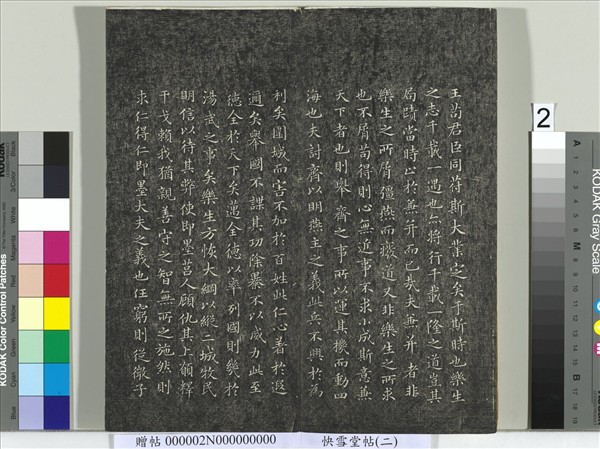 王苟君臣同符斯大業定矣于斯時也樂生
之志千載一遇也亦將行千載一隆之道豈其
局蹟當時止於兼并而已哉夫兼并者非
樂生之所屑彊燕而廢道又非樂生之所求
也不屑苟得則心無近事不求小成斯意兼
天下者也則舉齊之事所以運其機而動四
海也夫討齊以明燕主之義此兵不興於為
利矣圍城而害不加於百姓此仁心著於遐
邇矣舉國不謀其功除暴不以威力此至
德全於天下矣邁全德以率列國則幾於
湯武之事矣樂生方恢大綱以縱二城牧民
明信以待其弊使即墨莒人顧仇其上願釋
干戈賴我猶親善守之智無所之施然則
求仁得仁即墨大夫之義也任窮則從微子
2
KODAK Color Control Patches
Blue
Cyan
Green
Yellow
Red
Magenta
White
3/Color
Black
KODAK Gray Scale
A
1
2
3
4
5
6
M
8
9
10
11
12
13
14
15
B
17
18
19
贈帖 000002N000000000
快雪堂帖(二)